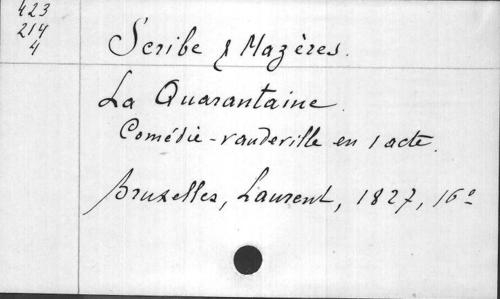 423
214
4
Scribe & Mazères.
La Quarantaine.
Comédie-vaudeville en 1 acte.
Bruxelles, Laurent, 1827, 16º